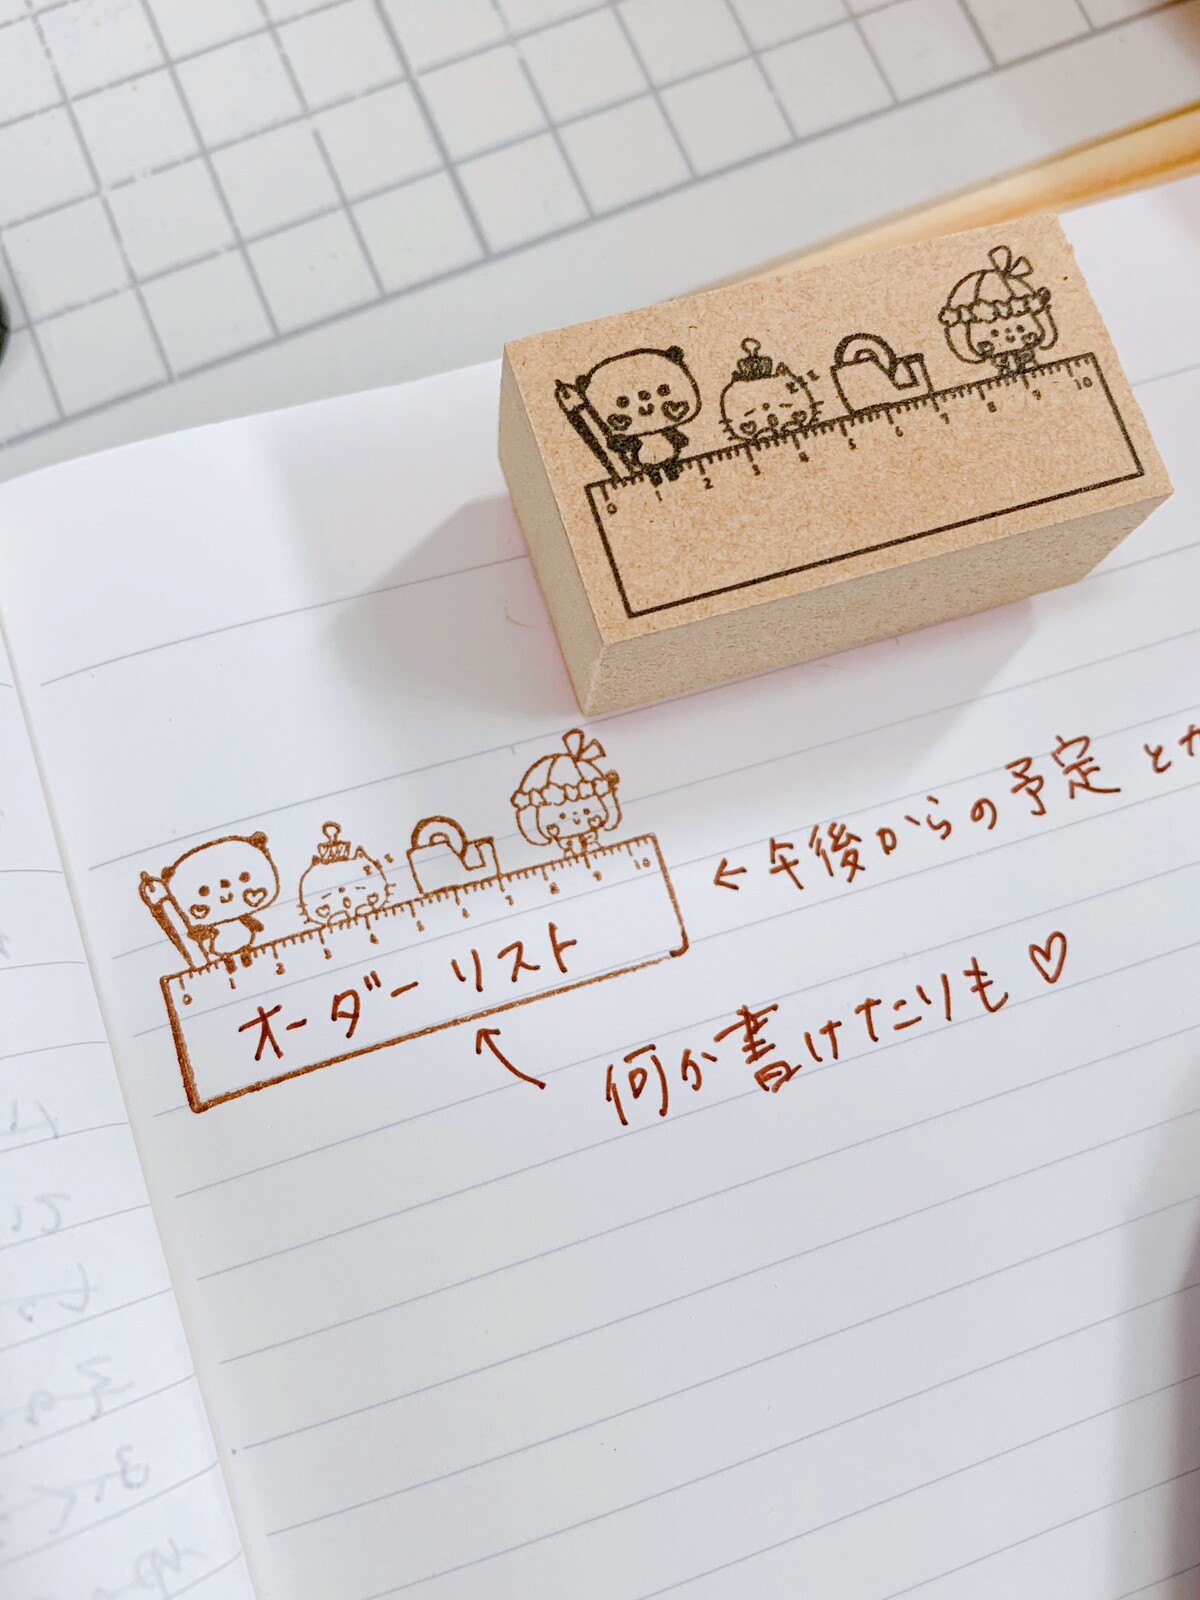 0 1 2 3 4 5 6 7 8 9 10
←午後からの予定 とか
0 1 2 3 4 5 6 7 8 9 10
オーダーリスト
何か書けたりも♡